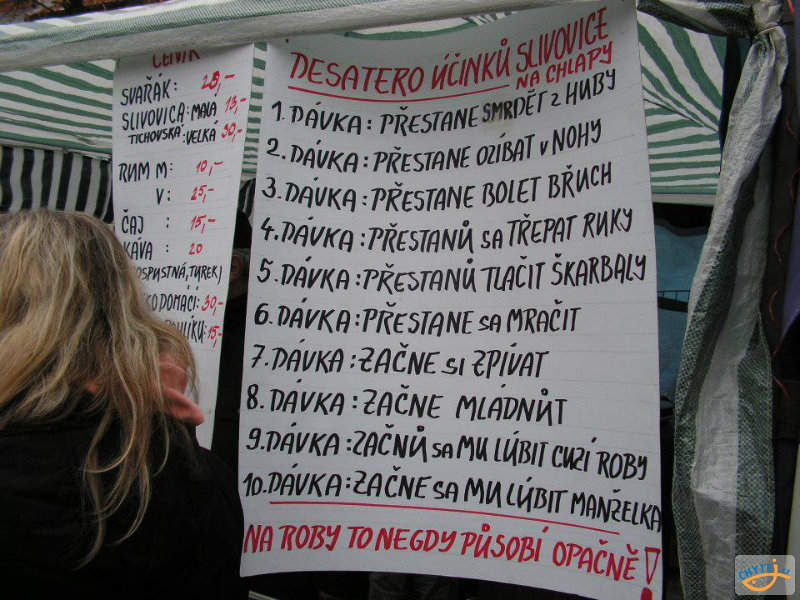 CENÍK
SVAŘÁK: 25,-
SLIVOVICA: MALÁ 15,-
TICHOVSKÁ: VELKÁ 30,-
RUM M: 10,-
V: 25,-
ČAJ : 15,-
KÁVA : 20
(ROZPUSTNÁ, TUREK)
DOMÁCÍ: 30,-
15,-
DESATERO ÚČINKŮ SLIVOVICE
NA CHLAPY
1. DÁVKA: PŘESTANE SMRDĚT z HUBY
2. DÁVKA: PŘESTANE OZÍBAT v NOHY
3. DÁVKA: PŘESTANE BOLET BŘUCH
4. DÁVKA: PŘESTANŮ sa TŘEPAT RUKY
5. DÁVKA: PŘESTANŮ TLAČIT ŠKARBALY
6. DÁVKA: PŘESTANE sa MRAČIT
7. DÁVKA: ZAČNE si ZPÍVAT
8. DÁVKA: ZAČNE MLÁDNŮT
9. DÁVKA: ZAČNŮ sa MU LÚBIT CUZÍ ROBY
10. DÁVKA: ZAČNE sa MU LÚBIT MANŽELKA
NA ROBY TO NEGDY PŮSOBÍ OPAČNĚ!